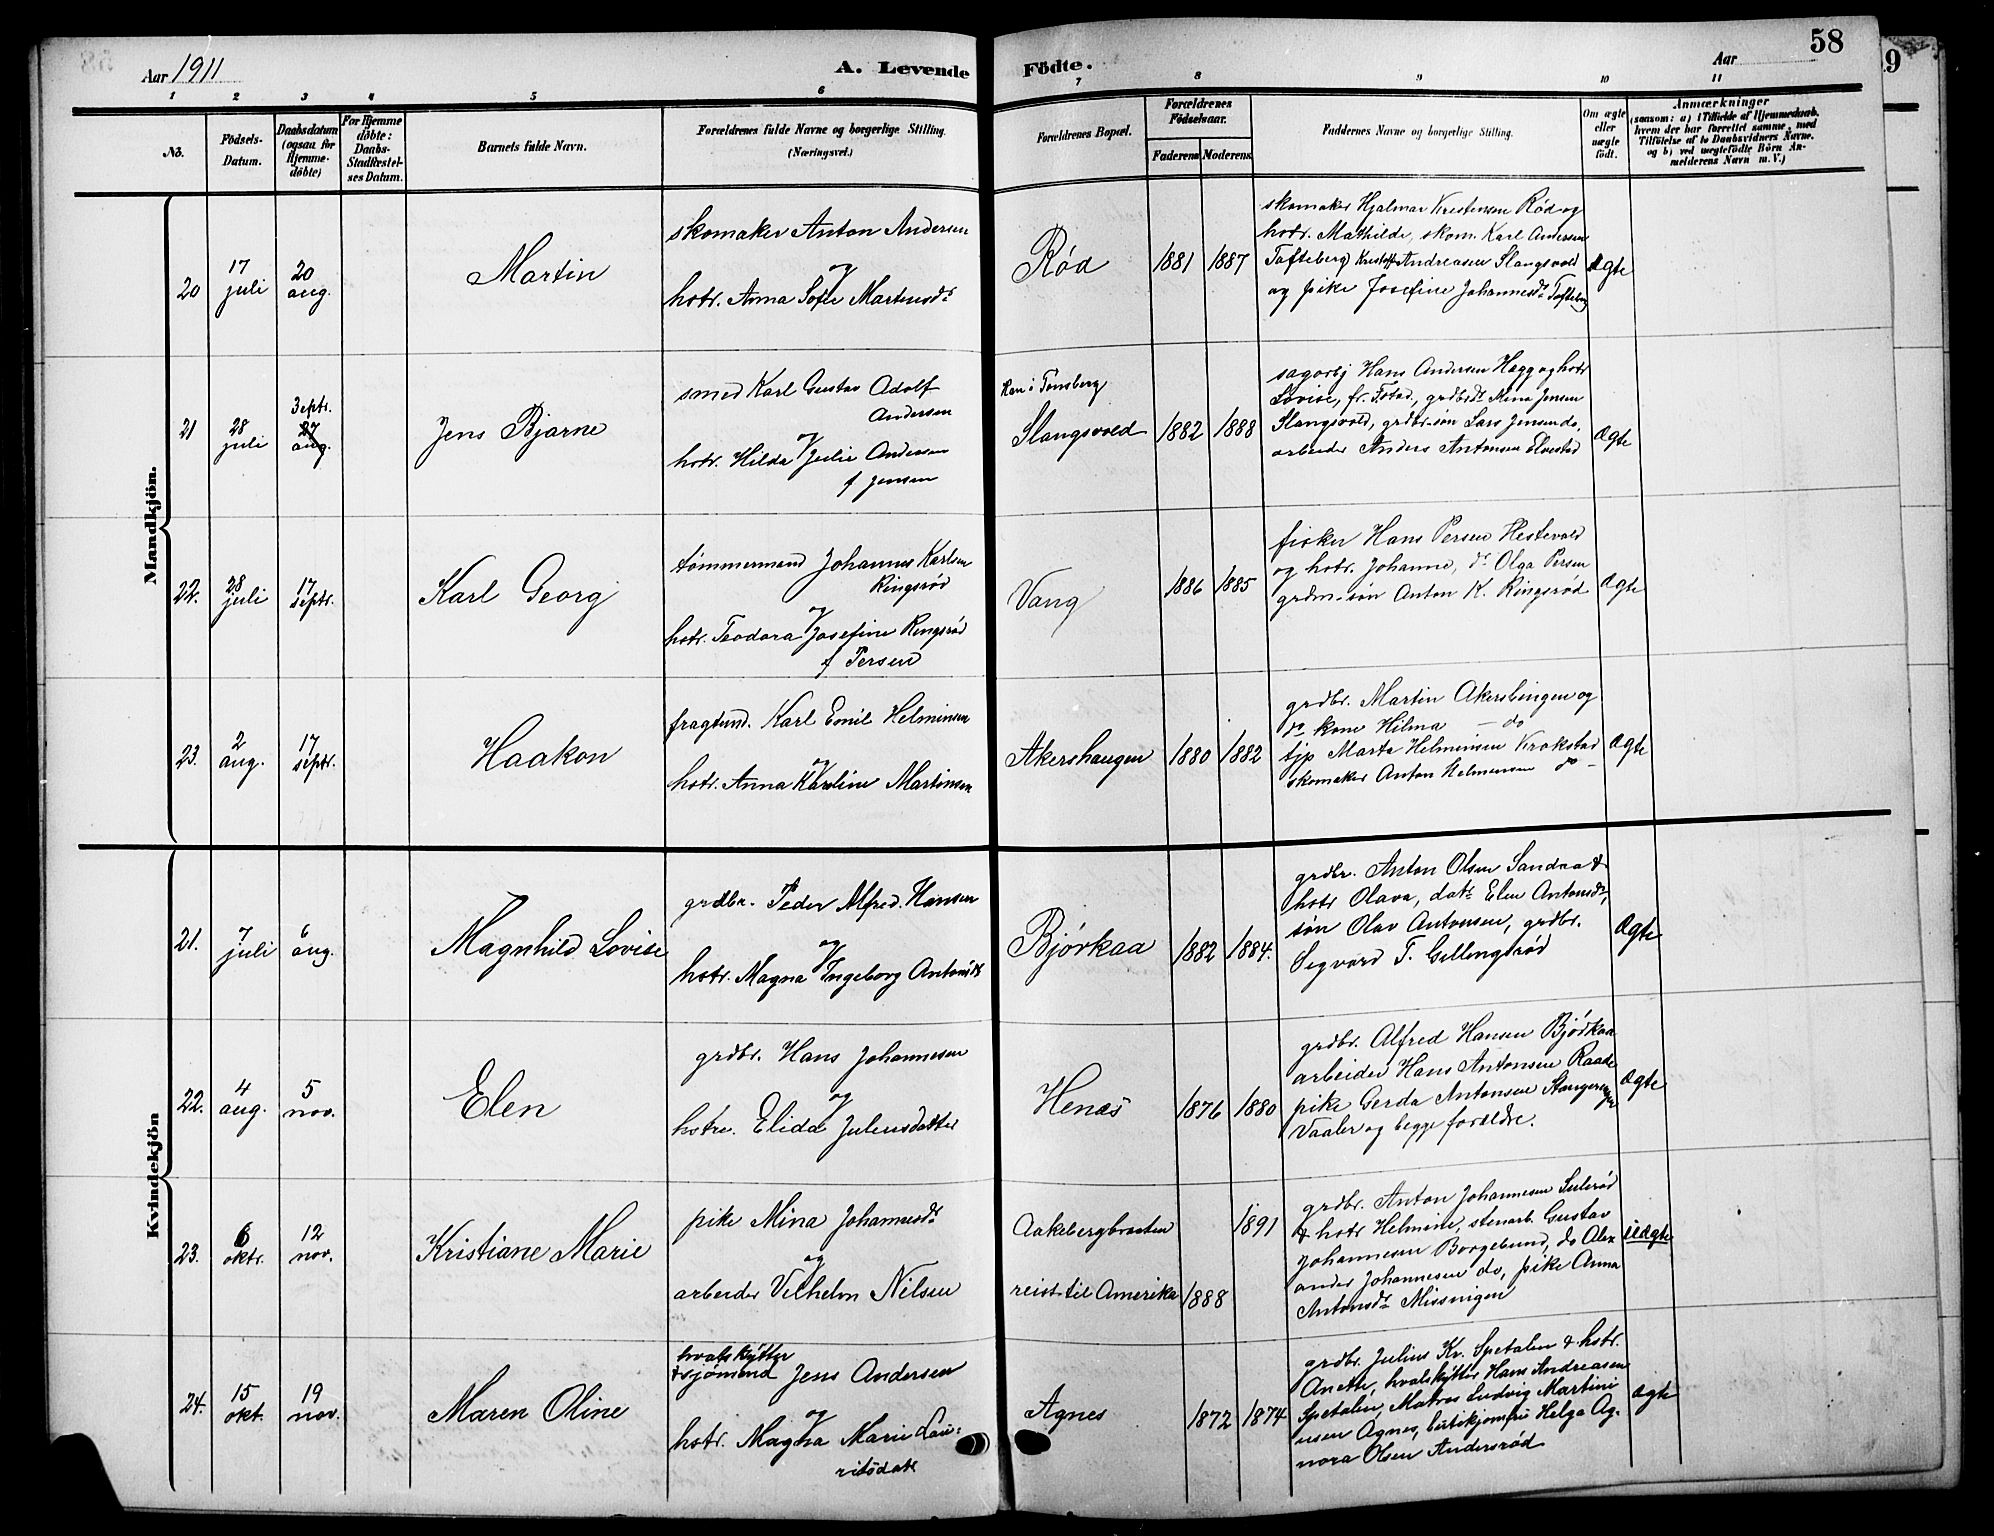 Aar 1911
A. Levende Födte.
Aar
58
1 2 3 4 5 6 7 8 9 10 11
No.
Födsels-Datum.
Daabsdatum (ogsaa for Hjemmedöbte)
For Hjemmedöbte: Daabs-Stadfæstelses Datum.
Barnets fulde Navn.
Forældrenes fulde Navne og borgerlige Stilling. (Næringsvei.)
Forældrenes Bopæl.
Forældrenes Födselsaar.
Faderens Moderens
Faddernes Navne og borgerlige Stilling.
Om ægte eller uægte födt.
Anmærkninger
(saasom: a) i Tilfælde af Hjemmedaab, hvem der har forrettet samme, med Tilföielse af to Daabsvidners Navne. og b) ved uægtefödte Börn Anmelderens Navn m. V.)
Mandkjön.
20
17 juli
20 aug.
Martin
skomaker Anton Andersen
og
hstr. Anna Sofie Martinsdr
Rød
1881 1887
skomaker Hjalmar Kristensen Rød og
hstr. Mathilde, skom. Karl Andersen
Tofteberg Kristoff Andreasen Slangsvold
og pike Josefine Johannesdr Tofteberg
ægte
21
28 juli
3 septr.
27 aug.
Jens Bjarne
smed Karl Gustav Adolf
Andersen
og
hstr. Hilda Julie Andersen
f Jensen
Han i Tønsberg
Slangsvold
1882 1888
sagarbj Hans Andersen Hegg og hstr
Lovise, fr. Fstad, grdbrdt Mina Jensen
Slangsvold, grdbr.søn Lars Jensen do,
arbeider Anders Antonsen Elvestad
ægte
22.
28 juli
17 septr.
Karl Georg
tømmermand Johannes Karlsen
Ringsrød
og
hstr. Teodora Josefine Ringsrød
f Persen
Vang
1886 1885
fisker Hans Persen Hestevold
og hstr. Johanne, dr Olga Persen
grdm.søn Anton K. Ringsrød
ægte
23.
2 aug.
17 septr.
Haakon
fragtmd. Karl Emil Helminsen
og
hstr. Anna Karoline Martinsen
Akershaugen
1880 1882
grdbr. Martin Akersbingen og
do kone Hilma — do
tjp Marta Helminsen Krokstad
skomaker Anton Helminsen do -
ægte
Kvindekjön
21.
7 juli
6 aug.
Magnhild Lovise
grdbr. Peder Alfred Hansen
og
hstr. Magna Ingeborg Antonsdt
Bjørkaa
1882 1884.
grdbr. Anton Olsen Sandaa &
hstr Olava, datr Elen Antonsdr,
søn Olav Antonsen, grdbr.
Segvard T. Gillingsrød
ægte
22.
4 aug.
5 nov.
Elen
grdbr. Hans Johannesen
og
hstru. Elida Juliusdatter
Henæs
1876 1880
grdbr. Alfred Hansen Bjørkaa
arbeider Hans Antonsen Raade
pike Gerda Antonsen
Vaaler og begge forældre.
ægte
23.
6 oktr.
12 nov.
Kristiane Marie
pike Mina Johannesdr
og
arbeider Vilhelm Nilsen
Aakebergbraaten
1891
reist til Amerika 1888
grdbr. Anton Johannesen
& hstr Helmine, stenarb. Gustav
Johannesen Borgebund, do Alex
ander Johannesen do, pike Anna
Antonsdr Missingen
uægte
24.
15 okt.
19 nov.
Maren Oline
hvalskytter
& sjømand Jens Andersen
og
hstr. Magna Marie Lau-
ritsdatr
Agnes
1872 1874
grdbr. Julius Kr. Spetalen & hstr.
Anette, hvalskytter Hans Andreasen
Spetalen, Matros Ludvig Martini
usen Agnes, butikjomfru Helga Ag-
nora Olsen Andersrød
ægte